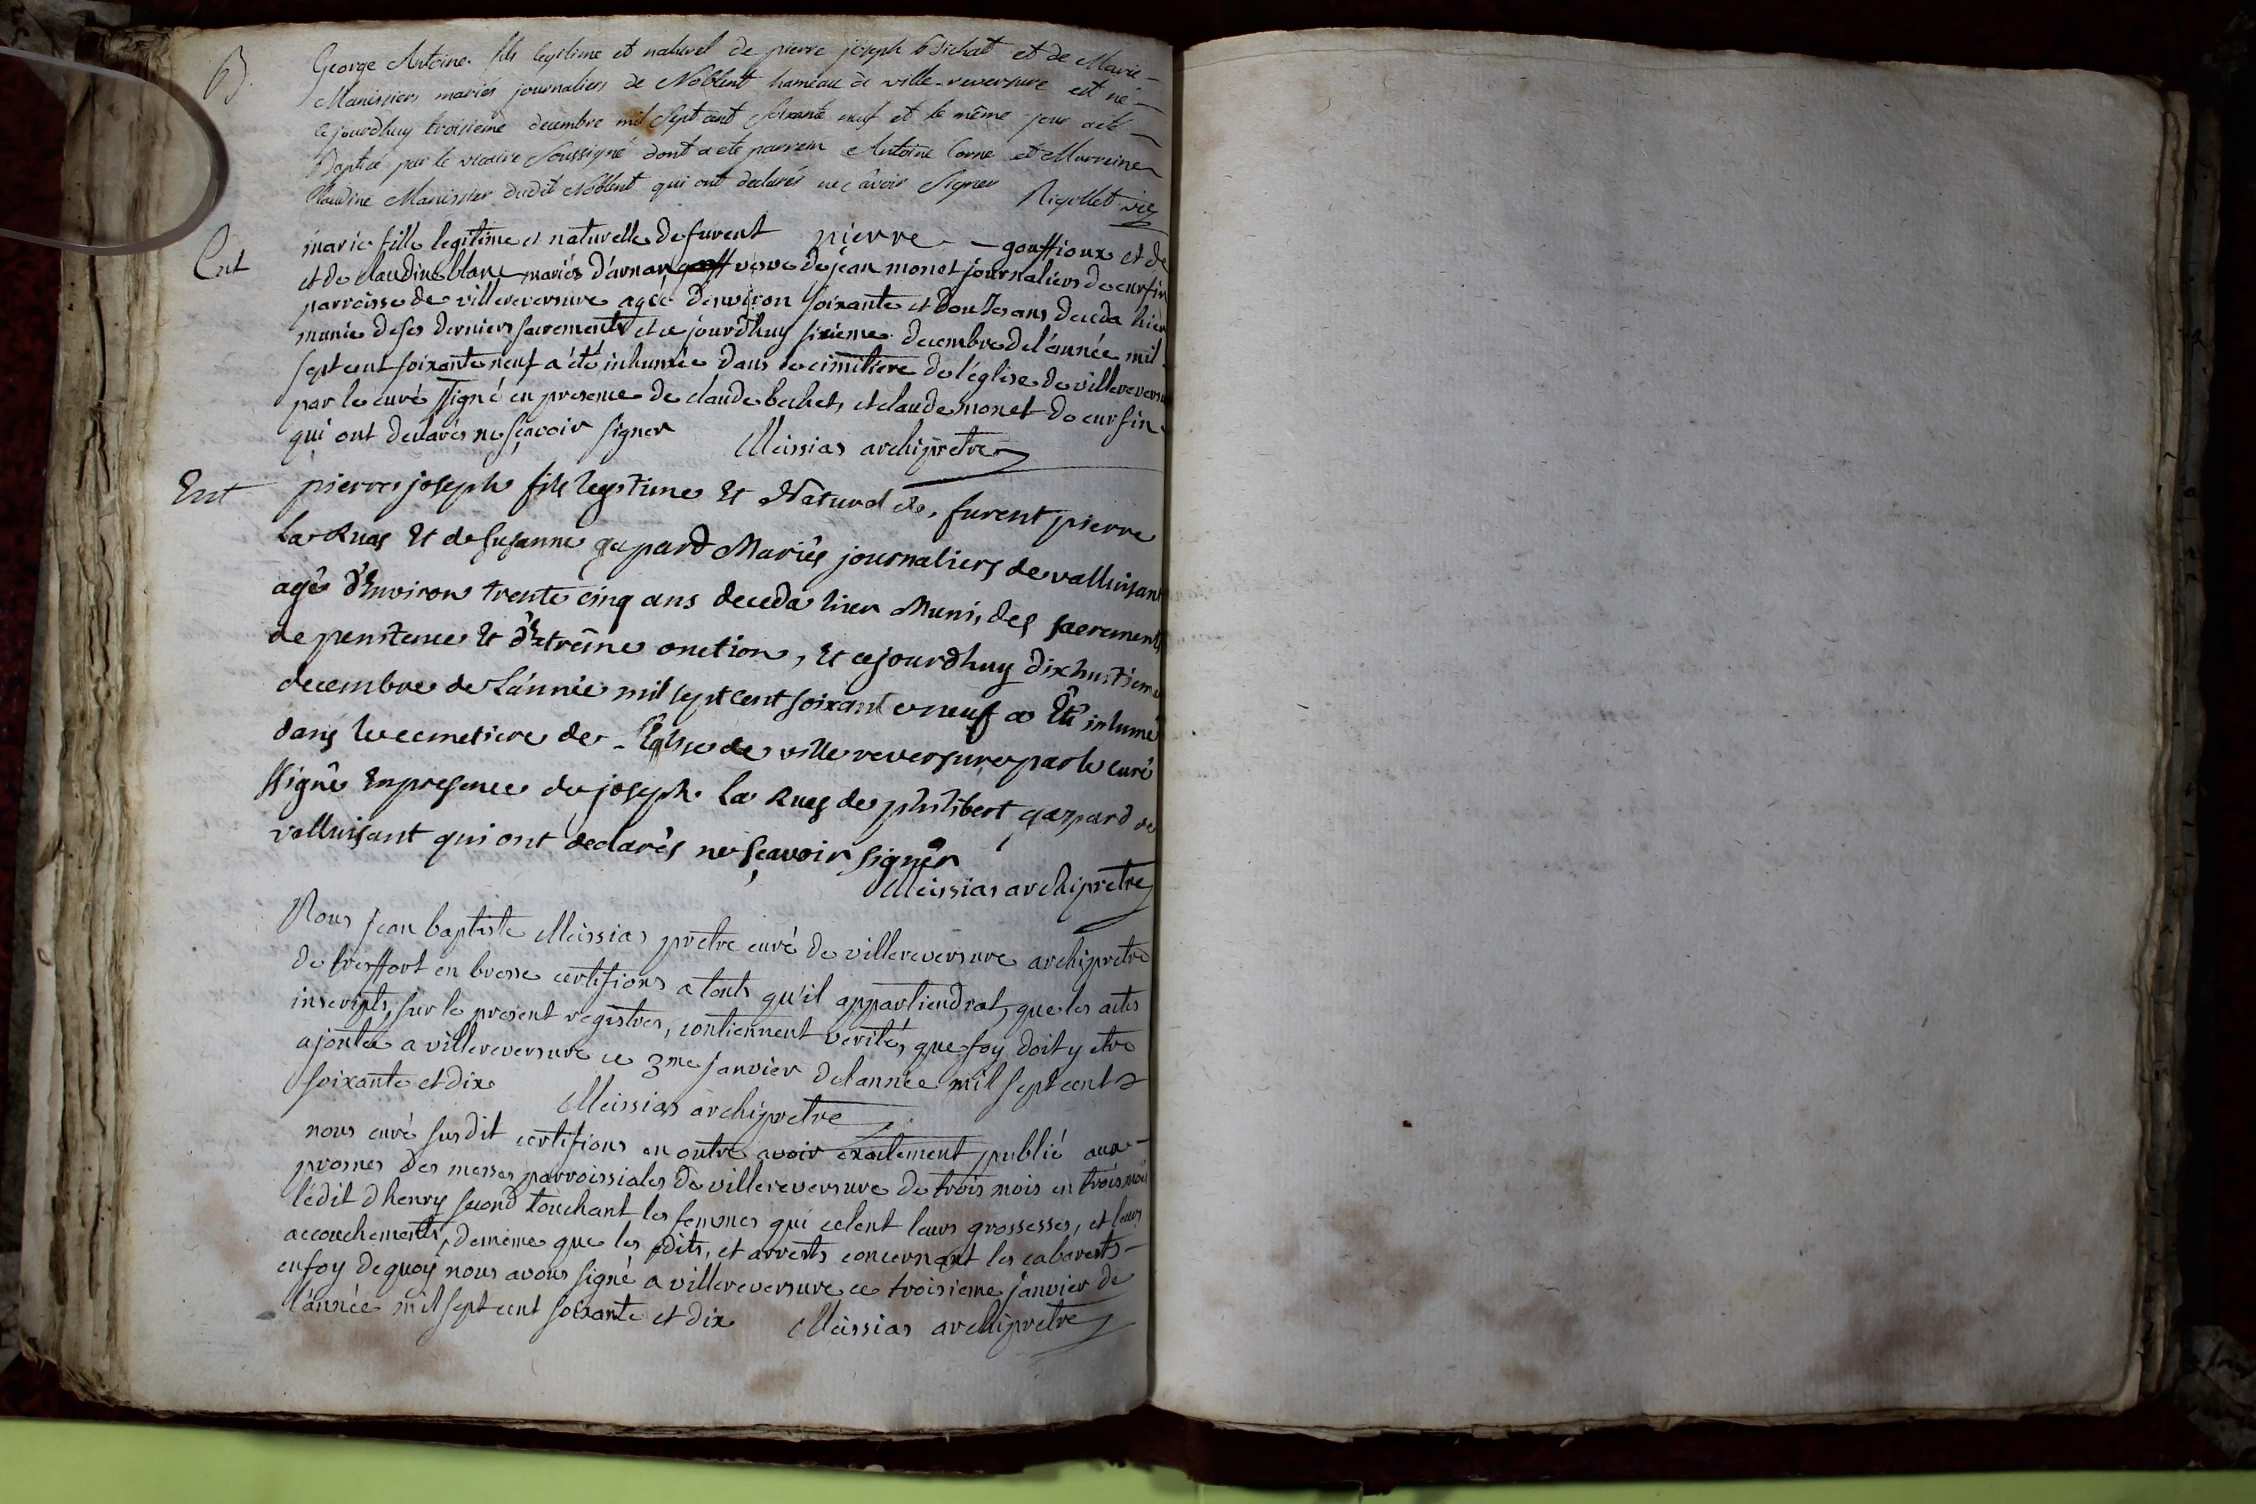 B. George Antoine fils legitime et naturel de pierre joseph Bichat et de Marie
Manissier mariés journaliers de Noblent hameau de ville-reversure est né
ce jourdhuy troisieme decembre mil sept cent soixante neuf et le même jour a été
Baptisé par le vicaire soussigné dont a été parrein Antoine Corne et Marreine
Claudine Manissier dudit Noblent qui ont declarés ne sçavoir signer Rigollet vic
Ent marie fille legitime et naturelle de furent pierre - gouffioux et de
et de claudine blanc mariés d'arnan veve de jean monet journaliers de curfin
parroisse de villereversure agée denviron soixante et douze ans deceda hier
munie de ses derniers sacrements et ce jourdhuy sixieme decembre de l'année mil
sept cent soixante neuf a été inhumée dans le cimitiere de l'église de villereversure
par le curé ssigné en presence de claude bechet, et claude monet de curfin
qui ont declarés ne sçavoir signer Meissias archiprêtre
Ent pierre joseph fils legitime Et Naturel de furent pierre
La Ruas Et de susanne gapard Mariés journaliers de valluisant
agé d'Environ trente cinq ans deceda hier Muni des sacrements
de penitence Et d'Extrême onction, Et cejourdhuy dixhuitieme
decembre de L'année mil sept cent soixante neuf a Eté inhumé
dans le cemetiere de L'Eglise de ville reversure par le curé
ssigné En presence de joseph La Ruas de philibert gaspard de
valluisant qui ont declarés ne sçavoir signer
Meissias archiprêtre
Nous jean baptiste Meissias prêtre curé de villereversure archiprêtre
de treffort en bresse certifions a touts qu'il appartiendrat, que les actes
inscripts, sur le present registres, contiennent verité, que foy doit y etre
ajoutée a villereversure ce 3me janvier de lannée mil sept cent
soixante et dix Meissias archiprêtre
nous curé susdit certifions en outre avoir exactement publié aux
prosnes des messes parroissiales de villereversure de trois mois en trois mois
l'édit d'henry second touchant les femmes qui celent leurs grossesses, et leurs
accouchements, demême que les edits, et arrests concernant les cabarets
en foy de quoy nous avons signé a villereversure ce troisieme janvier de
l'année mil sept cent soixante et dix Meissias archiprêtre